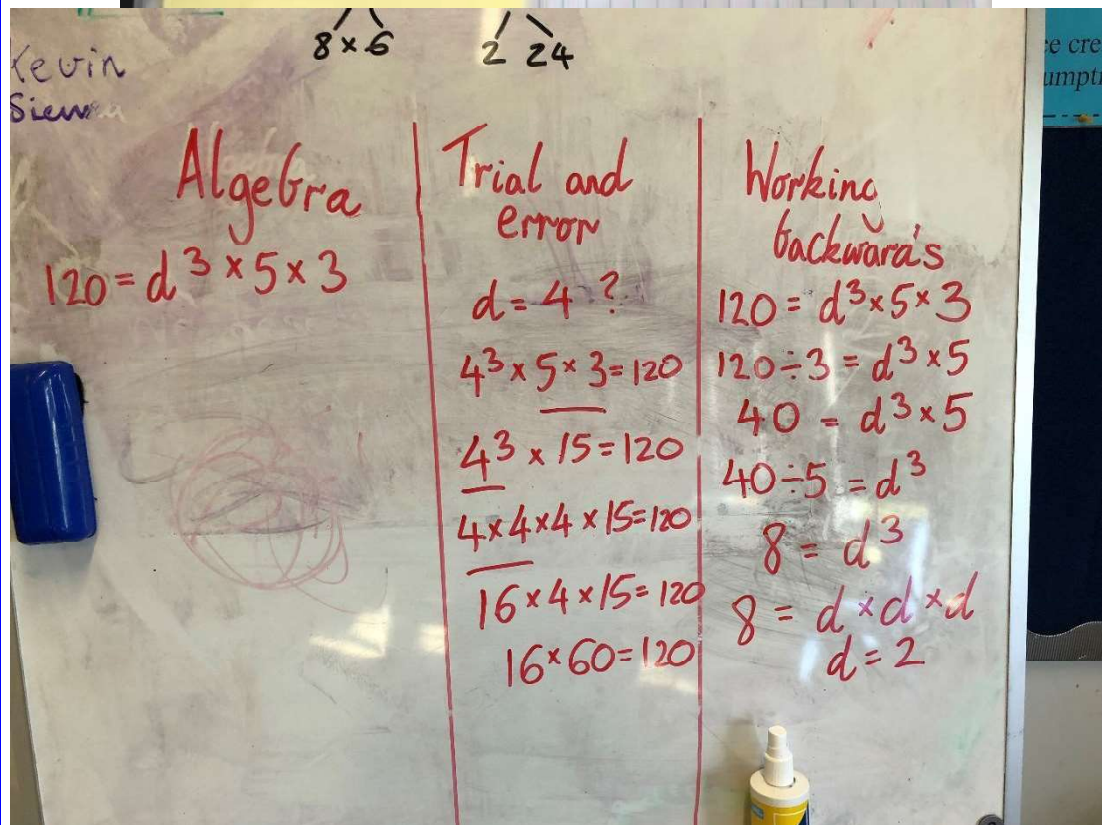 8 × 6
2 24
Kevin
Algebra
120 = d³ × 5 × 3
Trial and
error
d = 4 ?
4³ × 5 × 3 = 120
4³ × 15 = 120
4 × 4 × 4 × 15 = 120
16 × 4 × 15 = 120
16 × 60 = 120
Working
backward's
120 = d³ × 5 × 3
120 ÷ 3 = d³ × 5
40 = d³ × 5
40 ÷ 5 = d³
8 = d³
8 = d × d × d
d = 2